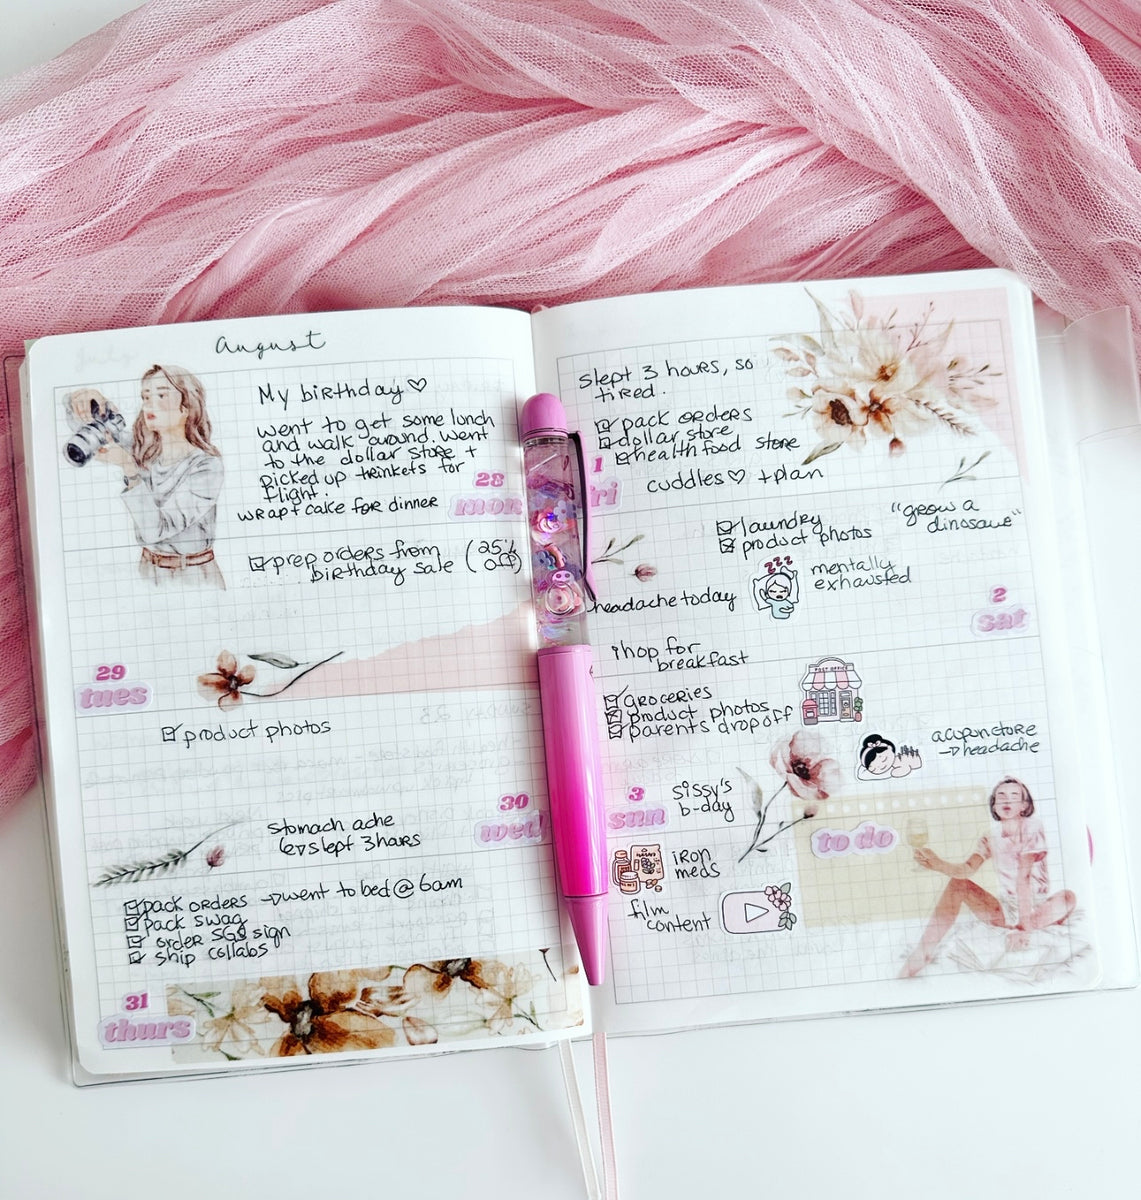 August
My birthday ♡
went to get some lunch
and walk around. Went
to the dollar store +
picked up trinkets for
flight.
wrap + cake for dinner
28
mon
☑ prep orders from
birthday sale (25%
off)
29
tues
☑ product photos
30
wed
stomach ache
↳ slept 3 hours
☑ pack orders → went to bed @ 6am
☑ pack swag
☑ order SGS sign
☑ ship collabs
31
thurs
slept 3 hours, so
tired.
☑ pack orders
☑ dollar store
☑ health food store
1
fri
cuddles ♡ + plan
☑ laundry
☑ product photos
"grow a
dinosaur"
zzz
mentally
exhausted
headache today
2
sat
ihop for
breakfast
POST OFFICE
☑ groceries
☑ product photos
☑ parents drop off
acupuncture
→ headache
3
sun
sissy's
b-day
to do
iron
meds
film
content